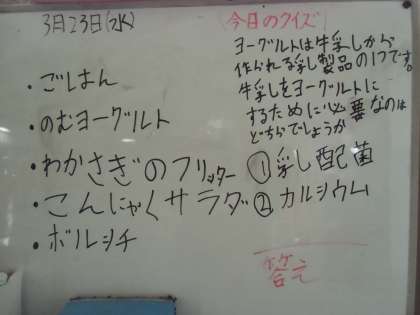 3月23日(水)
・ごはん
・のむヨーグルト
・わかさぎのフリッター
・こんにゃくサラダ
・ボルシチ
(今日のクイズ)
ヨーグルトは牛乳から
作られる乳製品の1つです。
牛乳をヨーグルトに
するために必要なのは
どちらでしょうか
①乳酸菌
②カルシウム
答え